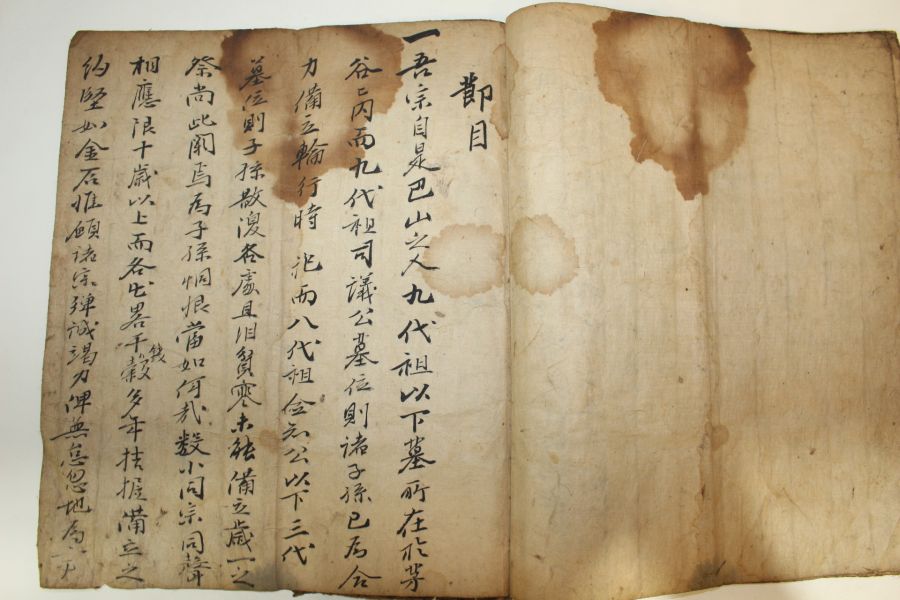 節目
一吾宗自是巴山之人九代祖以下墓所在於茅
谷已丙而九代祖司議公墓位則諸子孫已爲合
力備立輪行時祀而八代祖僉知公以下三代
墓位則子孫散渙各處且泪貧寒未能備立歲一之
祭尚此闕焉爲子孫悃恨當如何哉数小同宗同聲
相應限十歲以上而各出畧干錢穀多年拮据備立之
約堅如金石惟願諸宗殫誠竭力俾無怠忽地爲